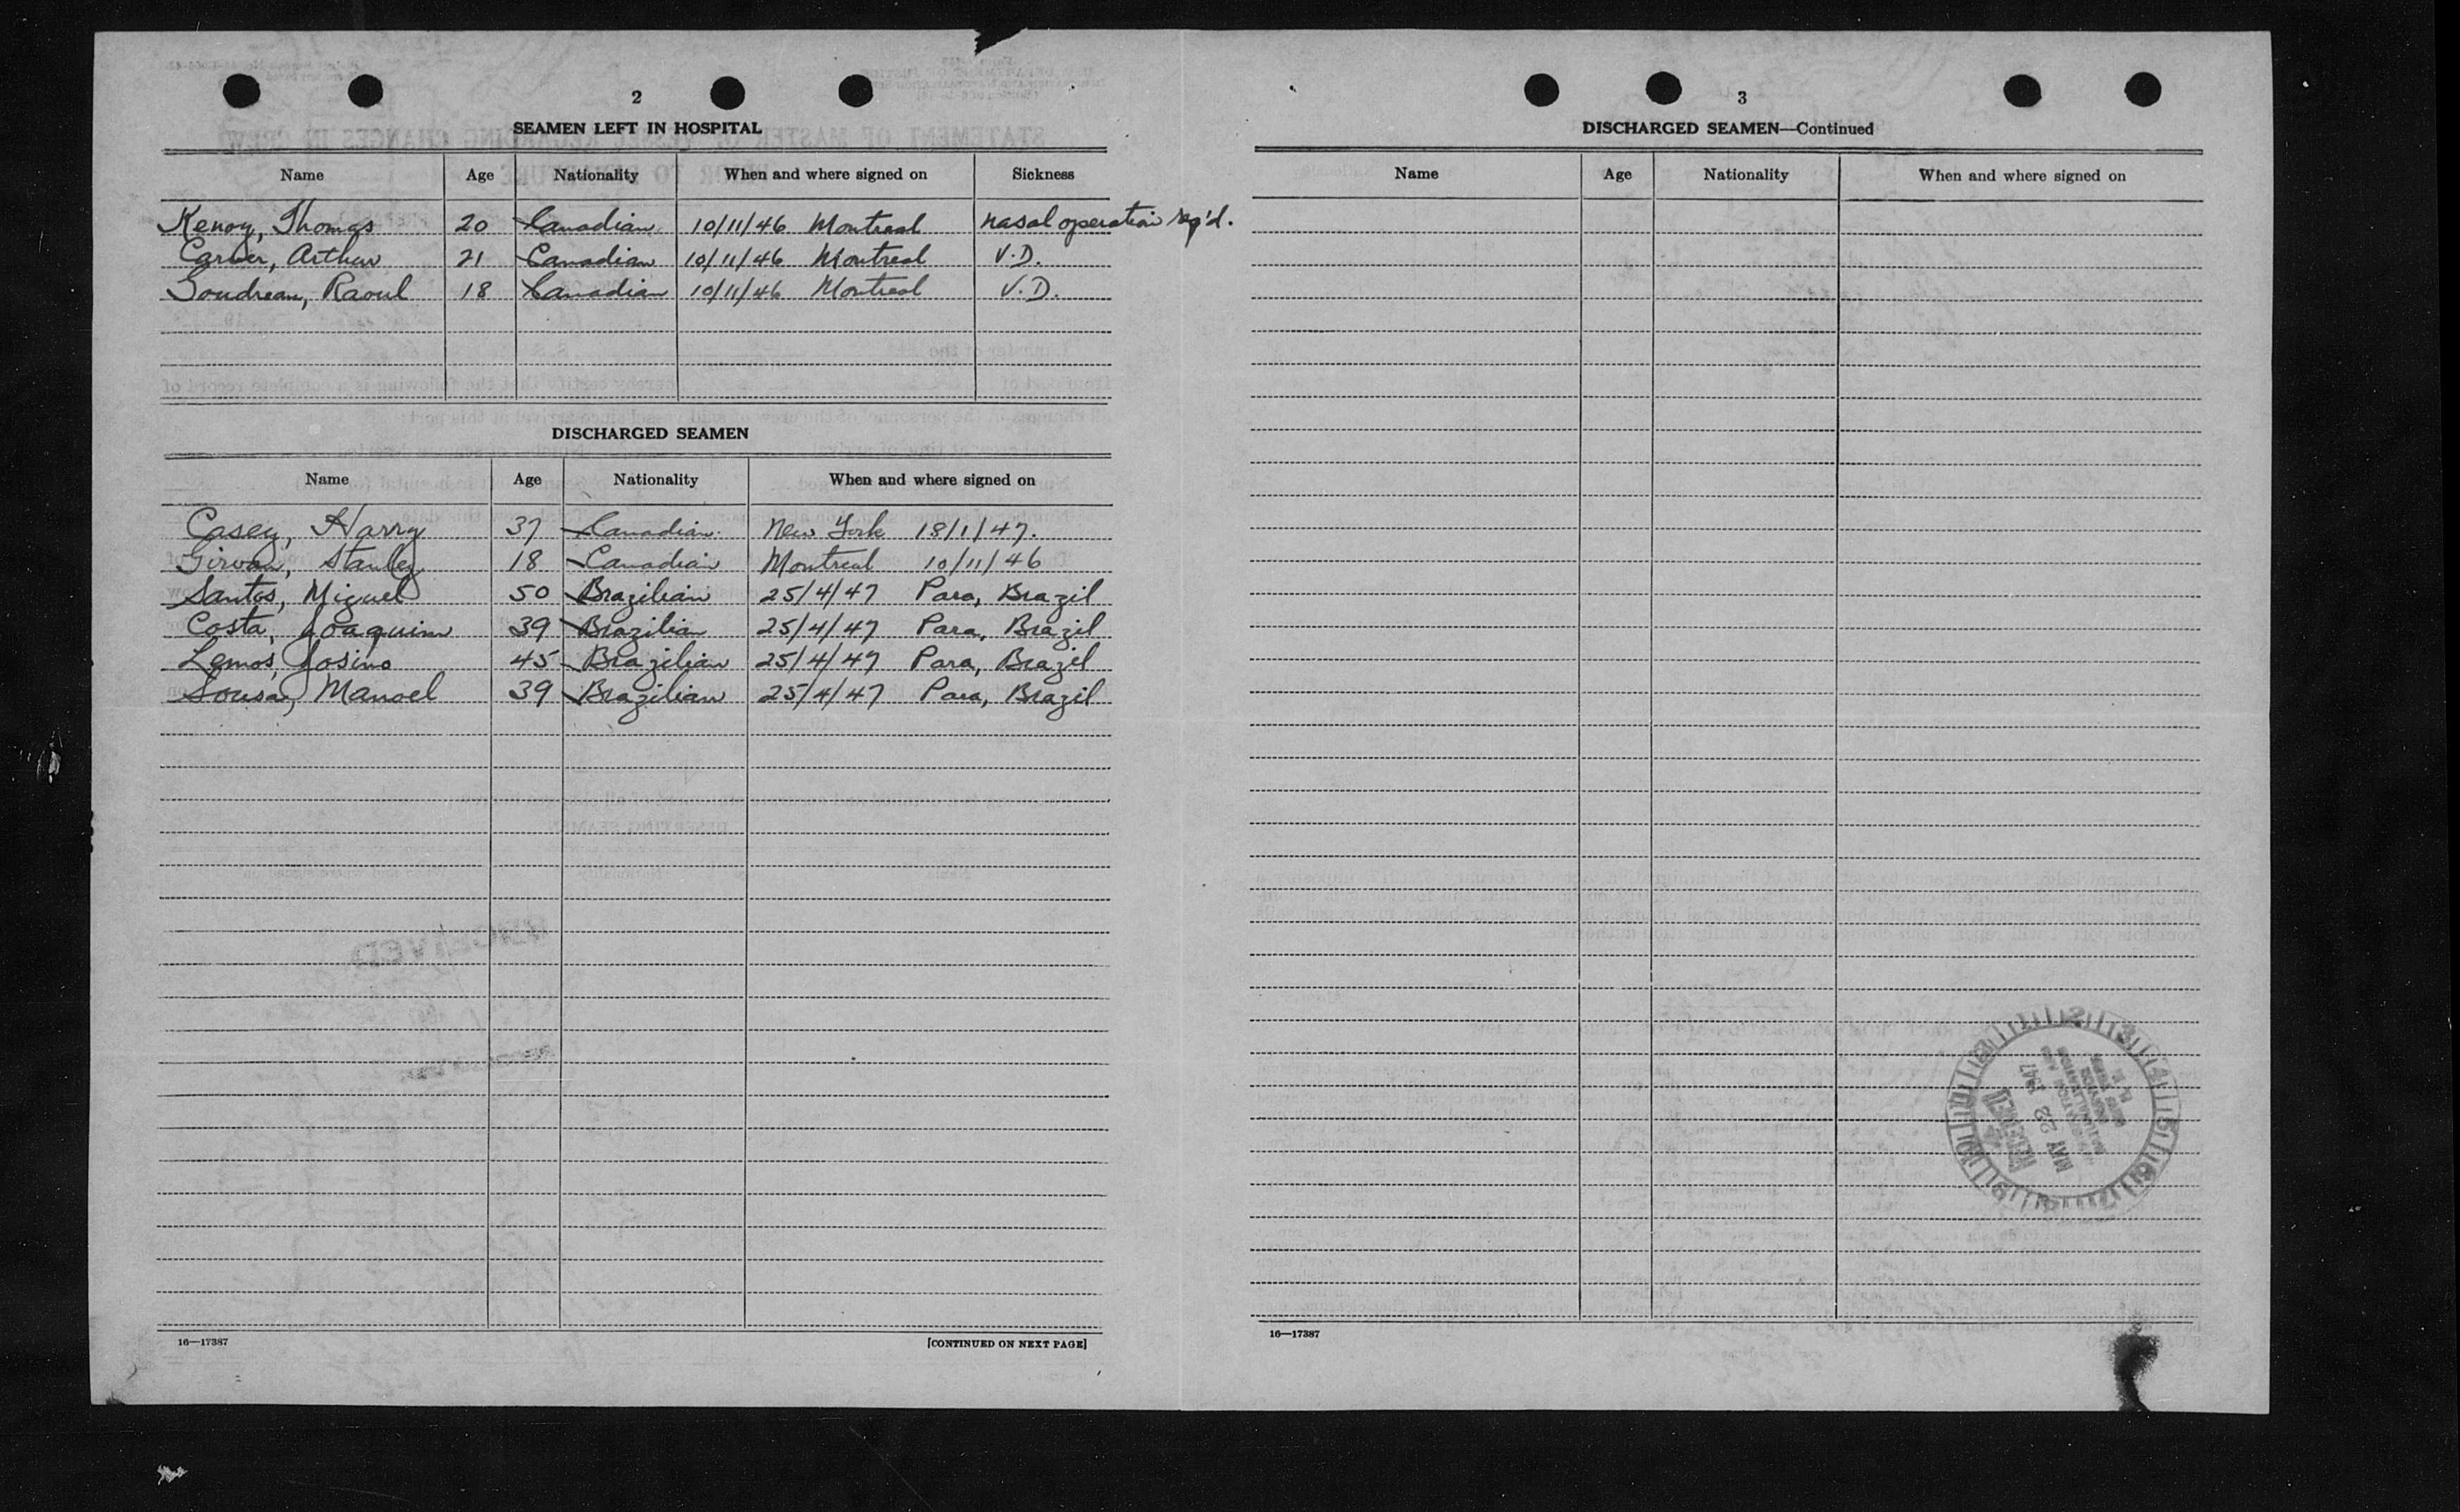 2
SEAMEN LEFT IN HOSPITAL
Name Age Nationality When and where signed on Sickness
Kenoy, Thomas 20 Canadian 10/11/46 Montreal nasal operation req'd.
Carver, Arthur 21 Canadian 10/11/46 Montreal V.D.
Goudreau, Raoul 18 Canadian 10/11/46 Montreal V.D.
DISCHARGED SEAMEN
Name Age Nationality When and where signed on
Casey, Harry 37 Canadian. New York 18/1/47.
Girvan, Stanley 18 Canadian Montreal 10/11/46
Santos, Miguel 50 Brazilian 25/4/47 Para, Brazil
Costa, Joaquim 39 Brazilian 25/4/47 Para, Brazil
Lemos, Josino 45 Brazilian 25/4/47 Para, Brazil
Sousa, Manoel 39 Brazilian 25/4/47 Para, Brazil
16—17387 [CONTINUED ON NEXT PAGE]
3
DISCHARGED SEAMEN—Continued
Name Age Nationality When and where signed on
RECEIVED
MAY 22 1947
16—17387